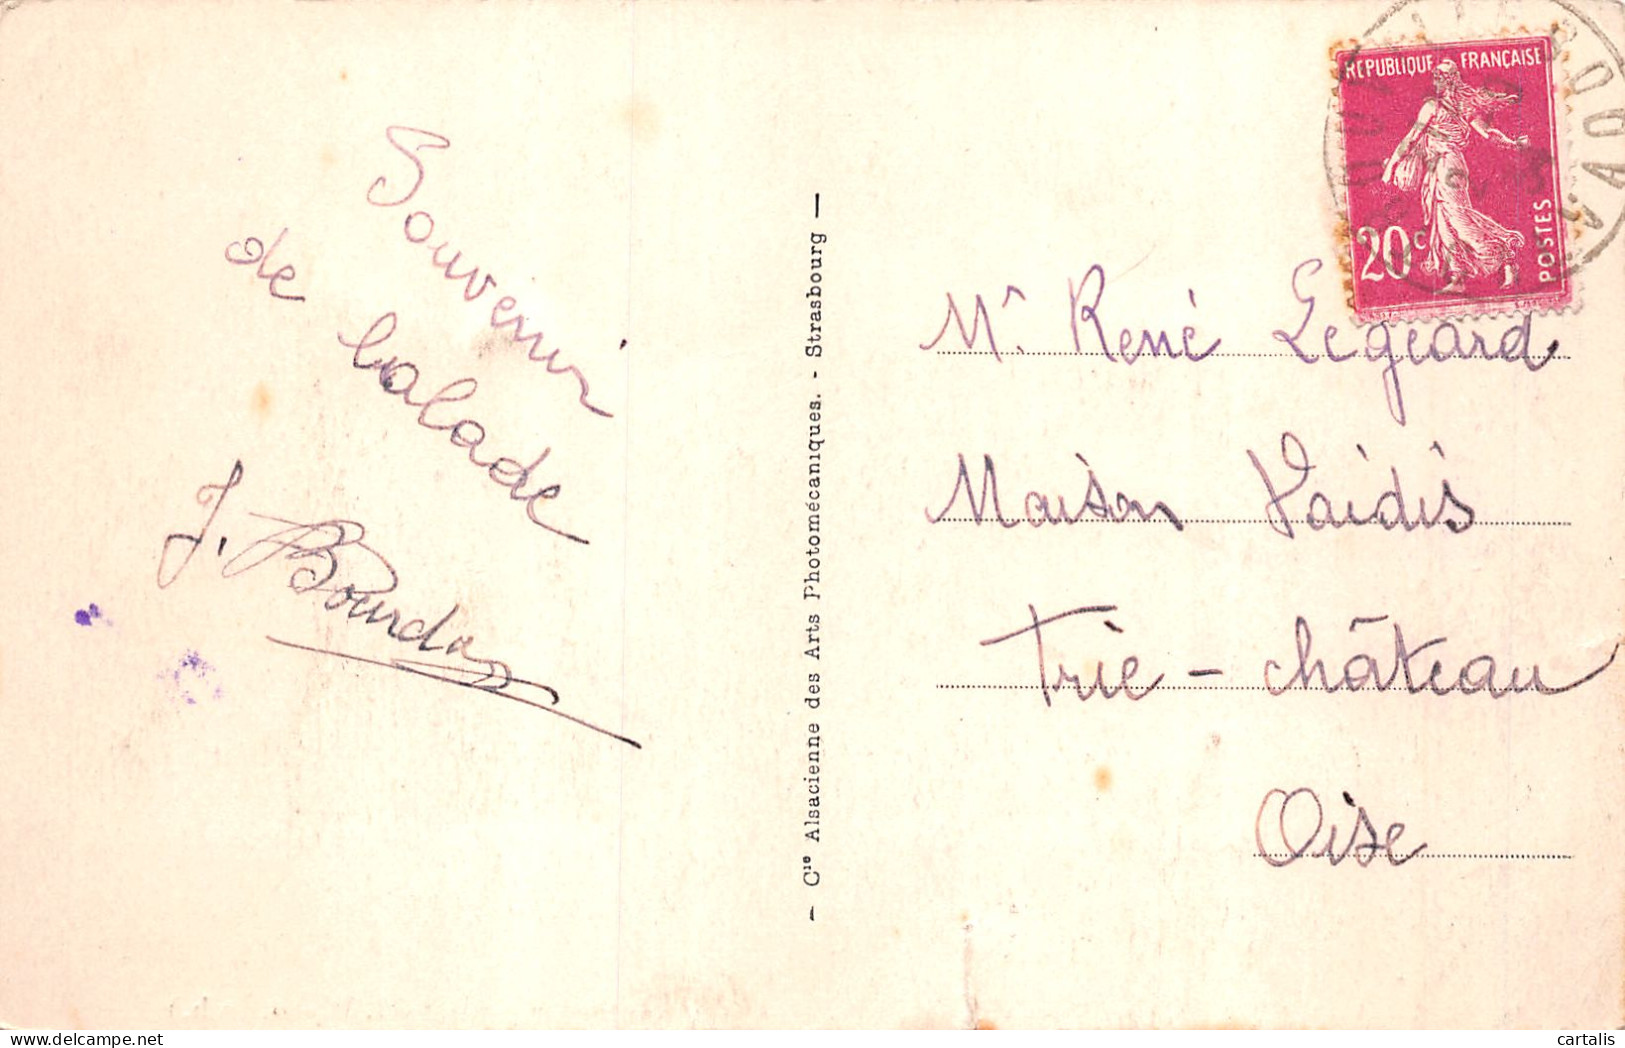 Souvenir
de balade
J. Bourdon
— Cie Alsacienne des Arts Photomécaniques. - Strasbourg —
REPUBLIQUE FRANÇAISE
20c
POSTES
CALVADOS
Mr. René Legeard
Maison Vaidis
Trie - château
Oise
delcampe.net
cartalis